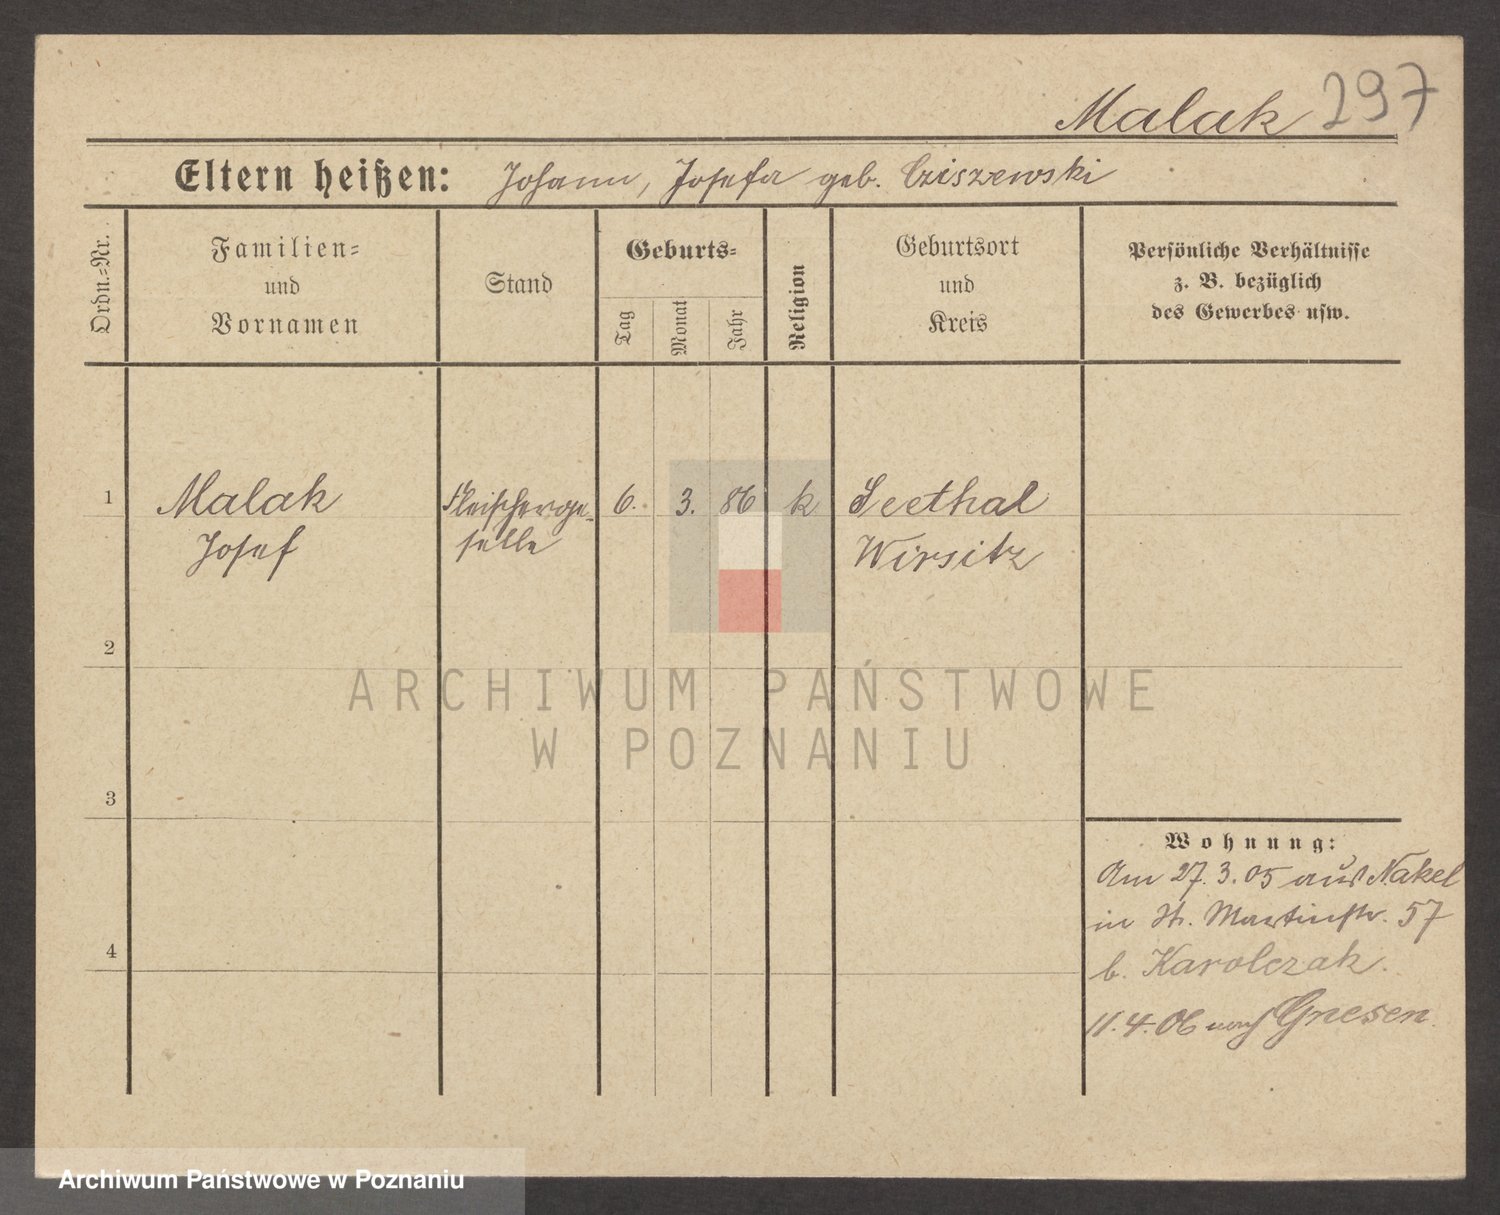 Malak 297
Eltern heißen: Johann, Josefa geb. Cziszewski
Ordn.-Nr.
Familien-
und
Vornamen
Stand
Geburts-
Tag
Monat
Jahr
Religion
Geburtsort
und
Kreis
Persönliche Verhältnisse
z. B. bezüglich
des Gewerbes usw.
1 Malak Fleischerge- 6. 3. 86 k Seethal
Josef selle Wirsitz
2
3
4
Wohnung:
Am 27. 3. 05 aus Nakel
in St. Martinstr. 57
b. Karolczak.
11. 4. 06 nach Gnesen.
ARCHIWUM PAŃSTWOWE
W POZNANIU
Archiwum Państwowe w Poznaniu